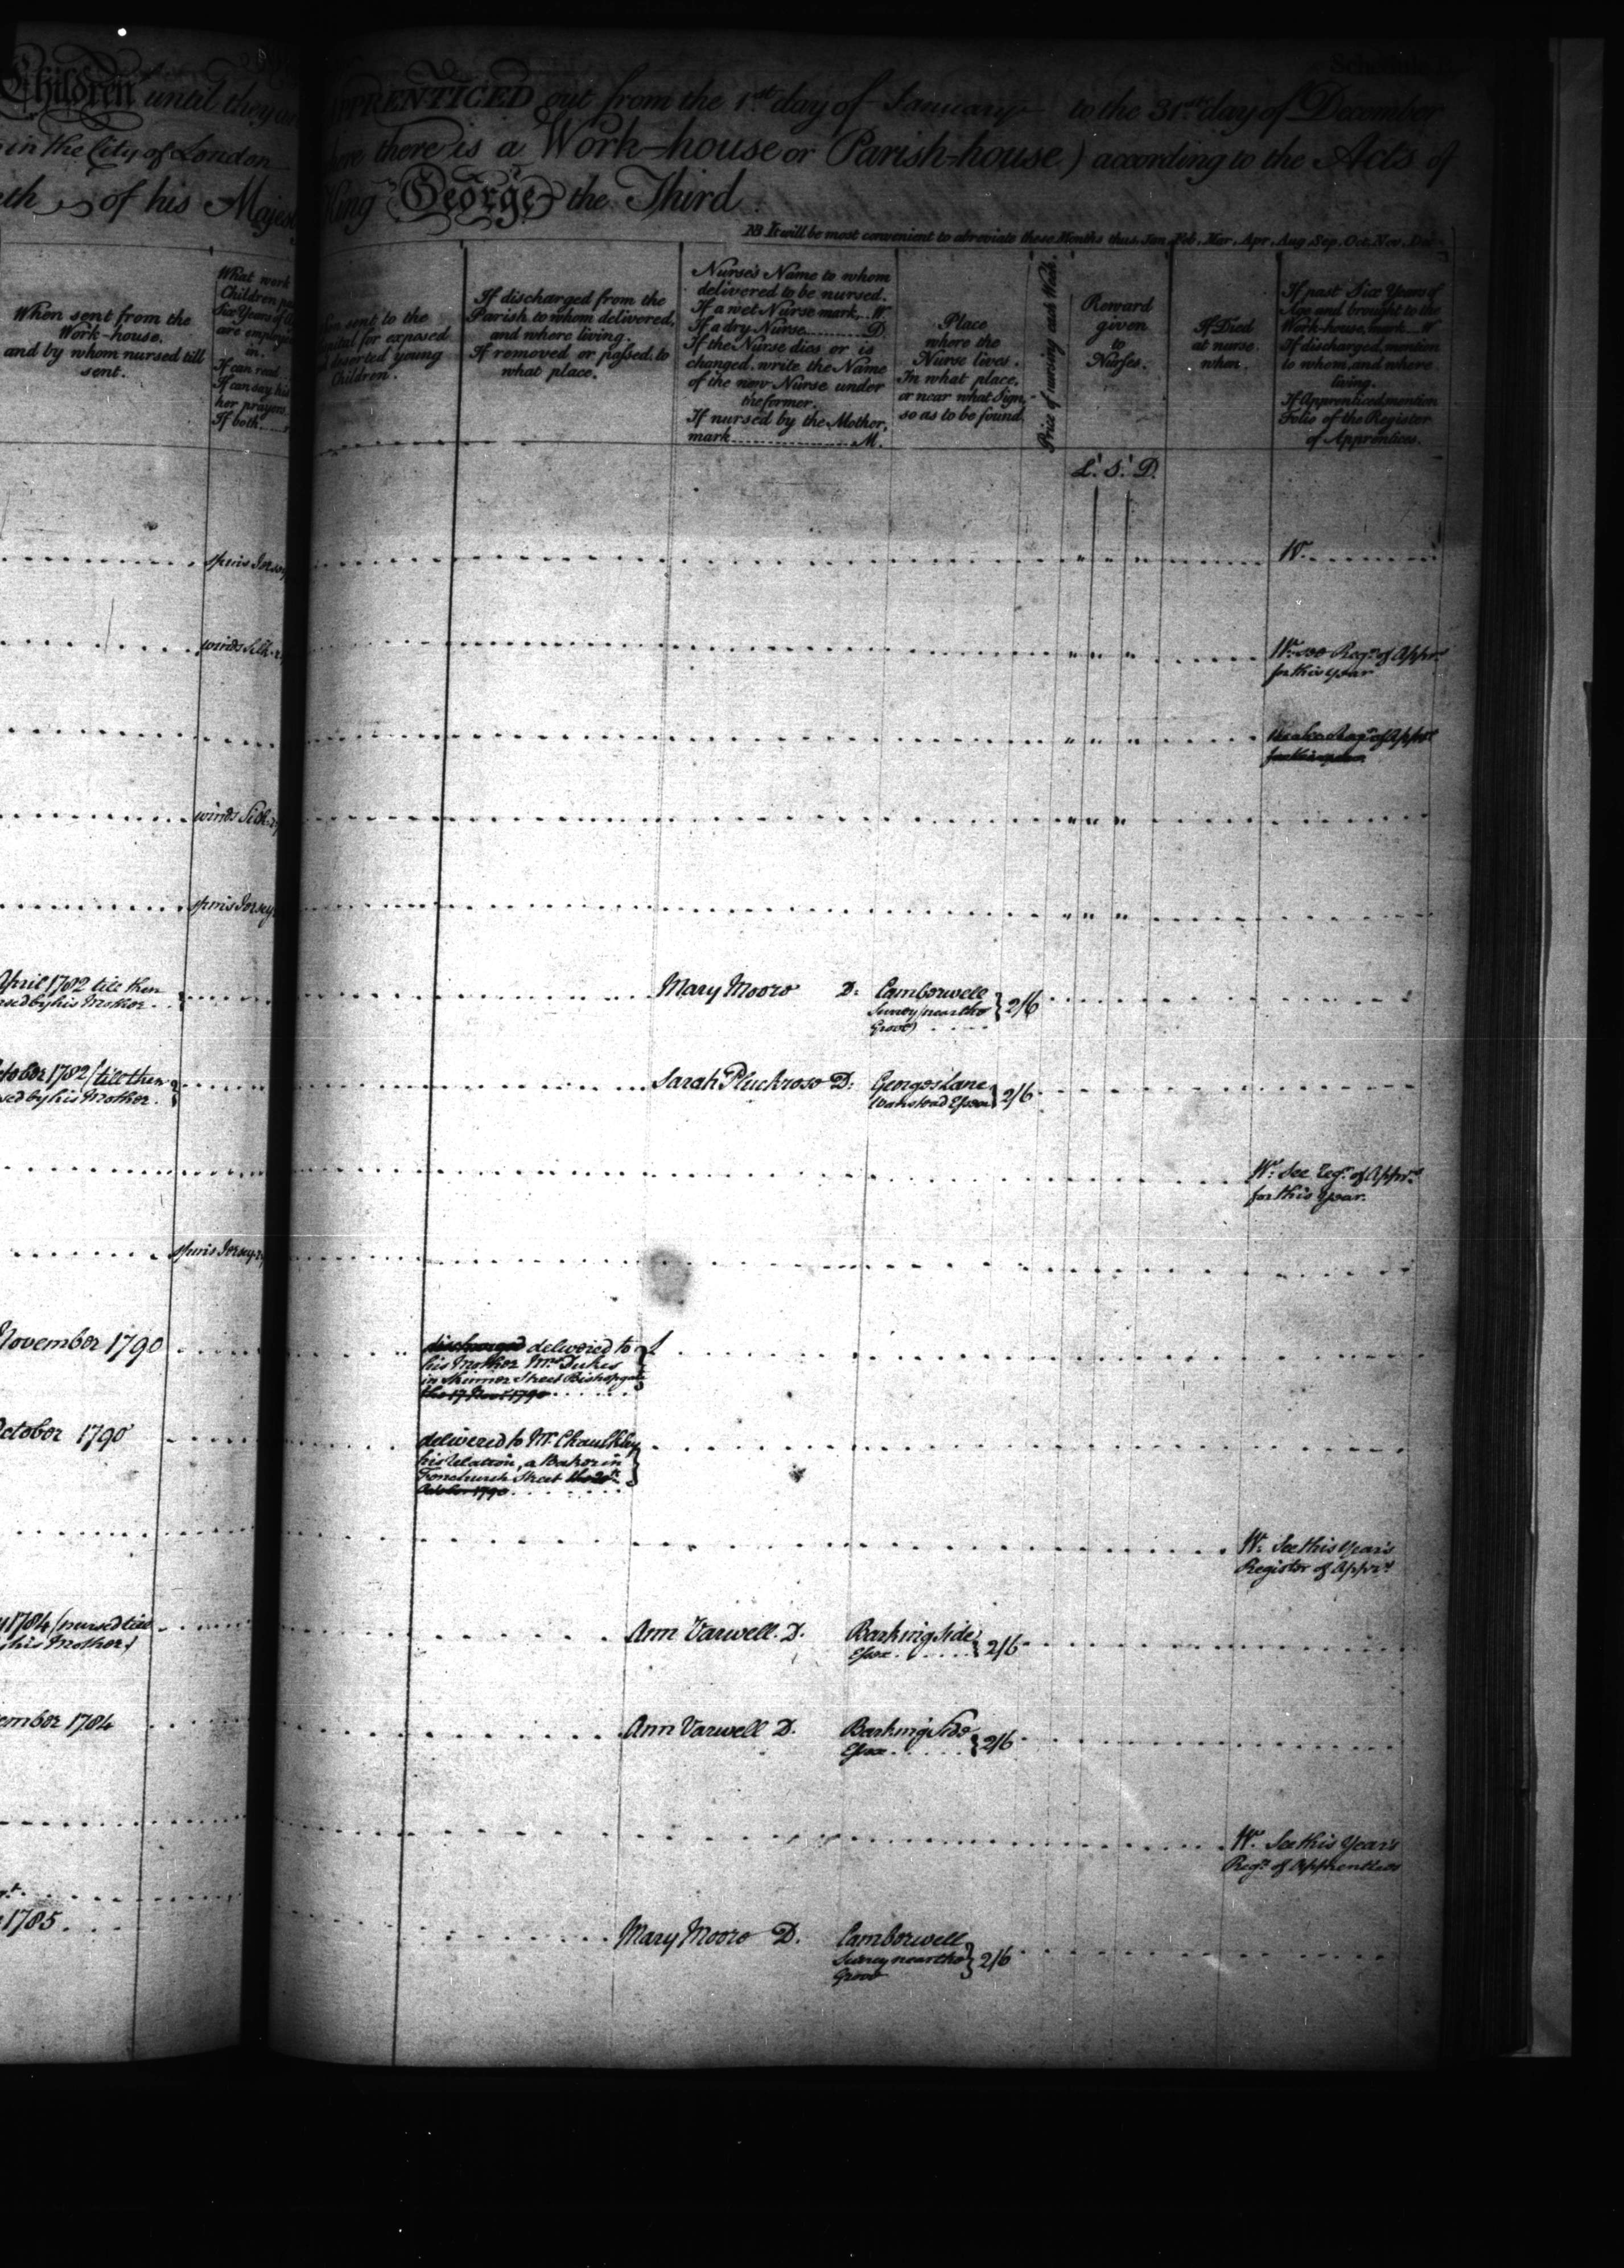 Children until they are
in the City of London
eth of his Majest
When sent from the
Work-house,
and by whom nursed till
sent.
What work
Children
Six Years of
are employ
in.
If can read
If can say his
her prayers
If both
spins Jersey
winds Silk
winds Silk
spins Jersey
April 1782 till then
nursed by his Mother
October 1782 (till then
nursed by his Mother
spins Jersey
November 1790
October 1790
1784 (nursed till
his Mother)
ember 1784
1785
APPRENTICED out from the 1st day of January to the 31st day of December
where there is a Work-house or Parish-house) according to the Acts of
King George the Third
NB It will be most convenient to abreviate these Months thus, Jan, Feb, Mar, Apr, Aug, Sep, Oct, Nov, Dec.
When sent to the
Hospital for exposed
and deserted young
Children.
If discharged from the
Parish to whom delivered,
and where living.
If removed or passed, to
what place.
Nurse's Name to whom
delivered to be nursed.
If a wet Nurse mark...W
If a dry Nurse...D
If the Nurse dies or is
changed, write the Name
of the new Nurse under
the former.
If nursed by the Mother,
mark...M.
Place
where the
Nurse lives.
In what place,
or near what Sign,
so as to be found
Price of nursing each Week.
Reward
given
to
Nurses.
If Died
at nurse.
when.
If past Six Years of
Age and brought to the
Work-house, mark...W
If discharged, mention
to whom, and where
living.
If Apprenticed mention
Folio of the Register
of Apprentices.
£. S. D.
W.
W. see Regr. of Apprs.
for this year
Mary Moore D. Camberwell
Surrey (near the
Grove) 2/6
Sarah Pluckrose D. Georges Lane
Wanstead Essex 2/6
W. See Regr. of Apprs.
for this year.
discharged delivered to
his Mother Mrs. Dukes
in Skinner Street Bishopgate
the 17 Novr. 1790
delivered to Mr. Chaulkley
his relation, a Baker in
Fenchurch Street the 20th
October 1790
W. See this Year's
Register of Apprs.
Ann Varwell. D. Barking Side
Essex 2/6
Ann Varwell D. Barking Side
Essex 2/6
W. See this Year's
Regr. of Apprentices
Mary Moore D. Camberwell
Surrey near the
Grove 2/6